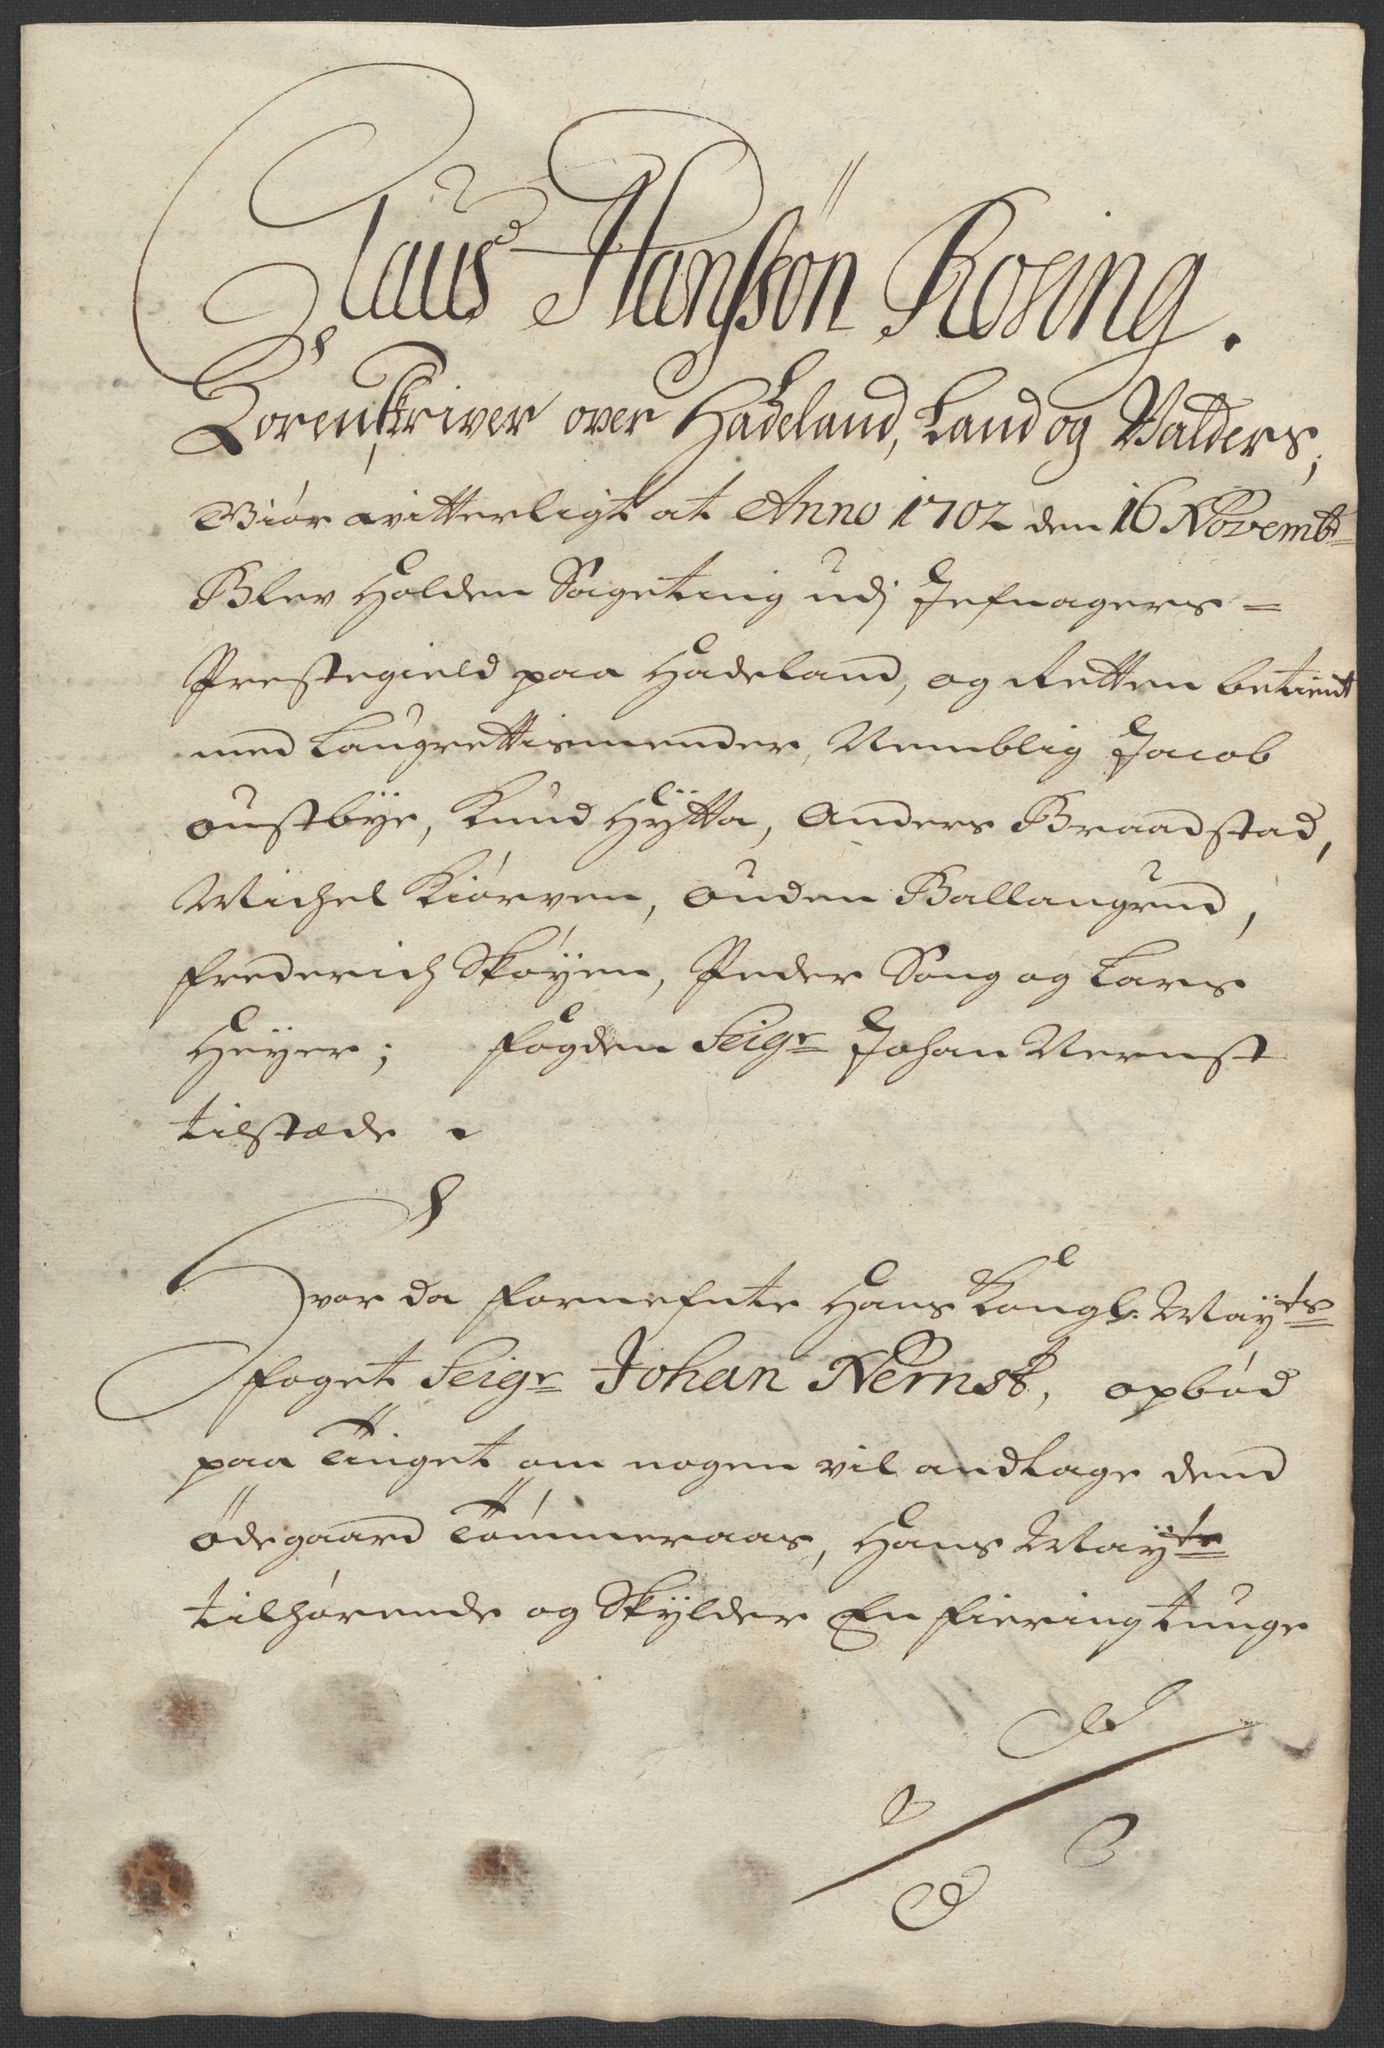 Claus Hansßøn Rosing.
Sorenskriver over Hadeland, Land og Valders;
Giør witterligt at Anno 1702 den 16 Novembr
Blev Holden Sageting udj Jefnagers=
Prestegield paa Hadeland, og Retten betient
med Laugrettismender, Nemblig Jacob
oustbÿe, Knud Hÿtta, Anders Braadstad,
Michel Kiørven, Ouden Ballangrud,
Frederich Skøyen, Peder Song og Lars
Heyer; Fogden Seigr Johan Nernst
tilstæde .
Hvor da fornefnte Hans Kongl: Mayts
Foget Seigr Johan Nernst, opbød
paa Tinget om nogen vil andtage dend
Ødegaard Tømmeraas, Hans Mayts
tilhørende og Skylder En fiering tunge